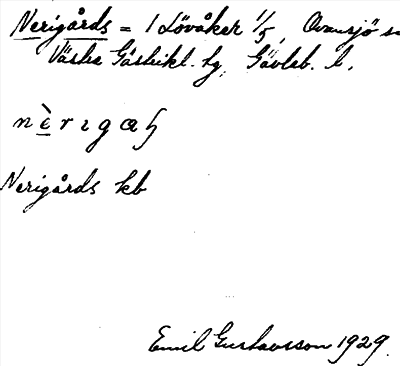 Nerigårds = 1 Lövåker 1/5, Ovansjö sn
Västra Gästrikl. tg, Gävleb. l.
nèrıgaɧ
Nerigårds kb
Emil Gustavsson 1929.